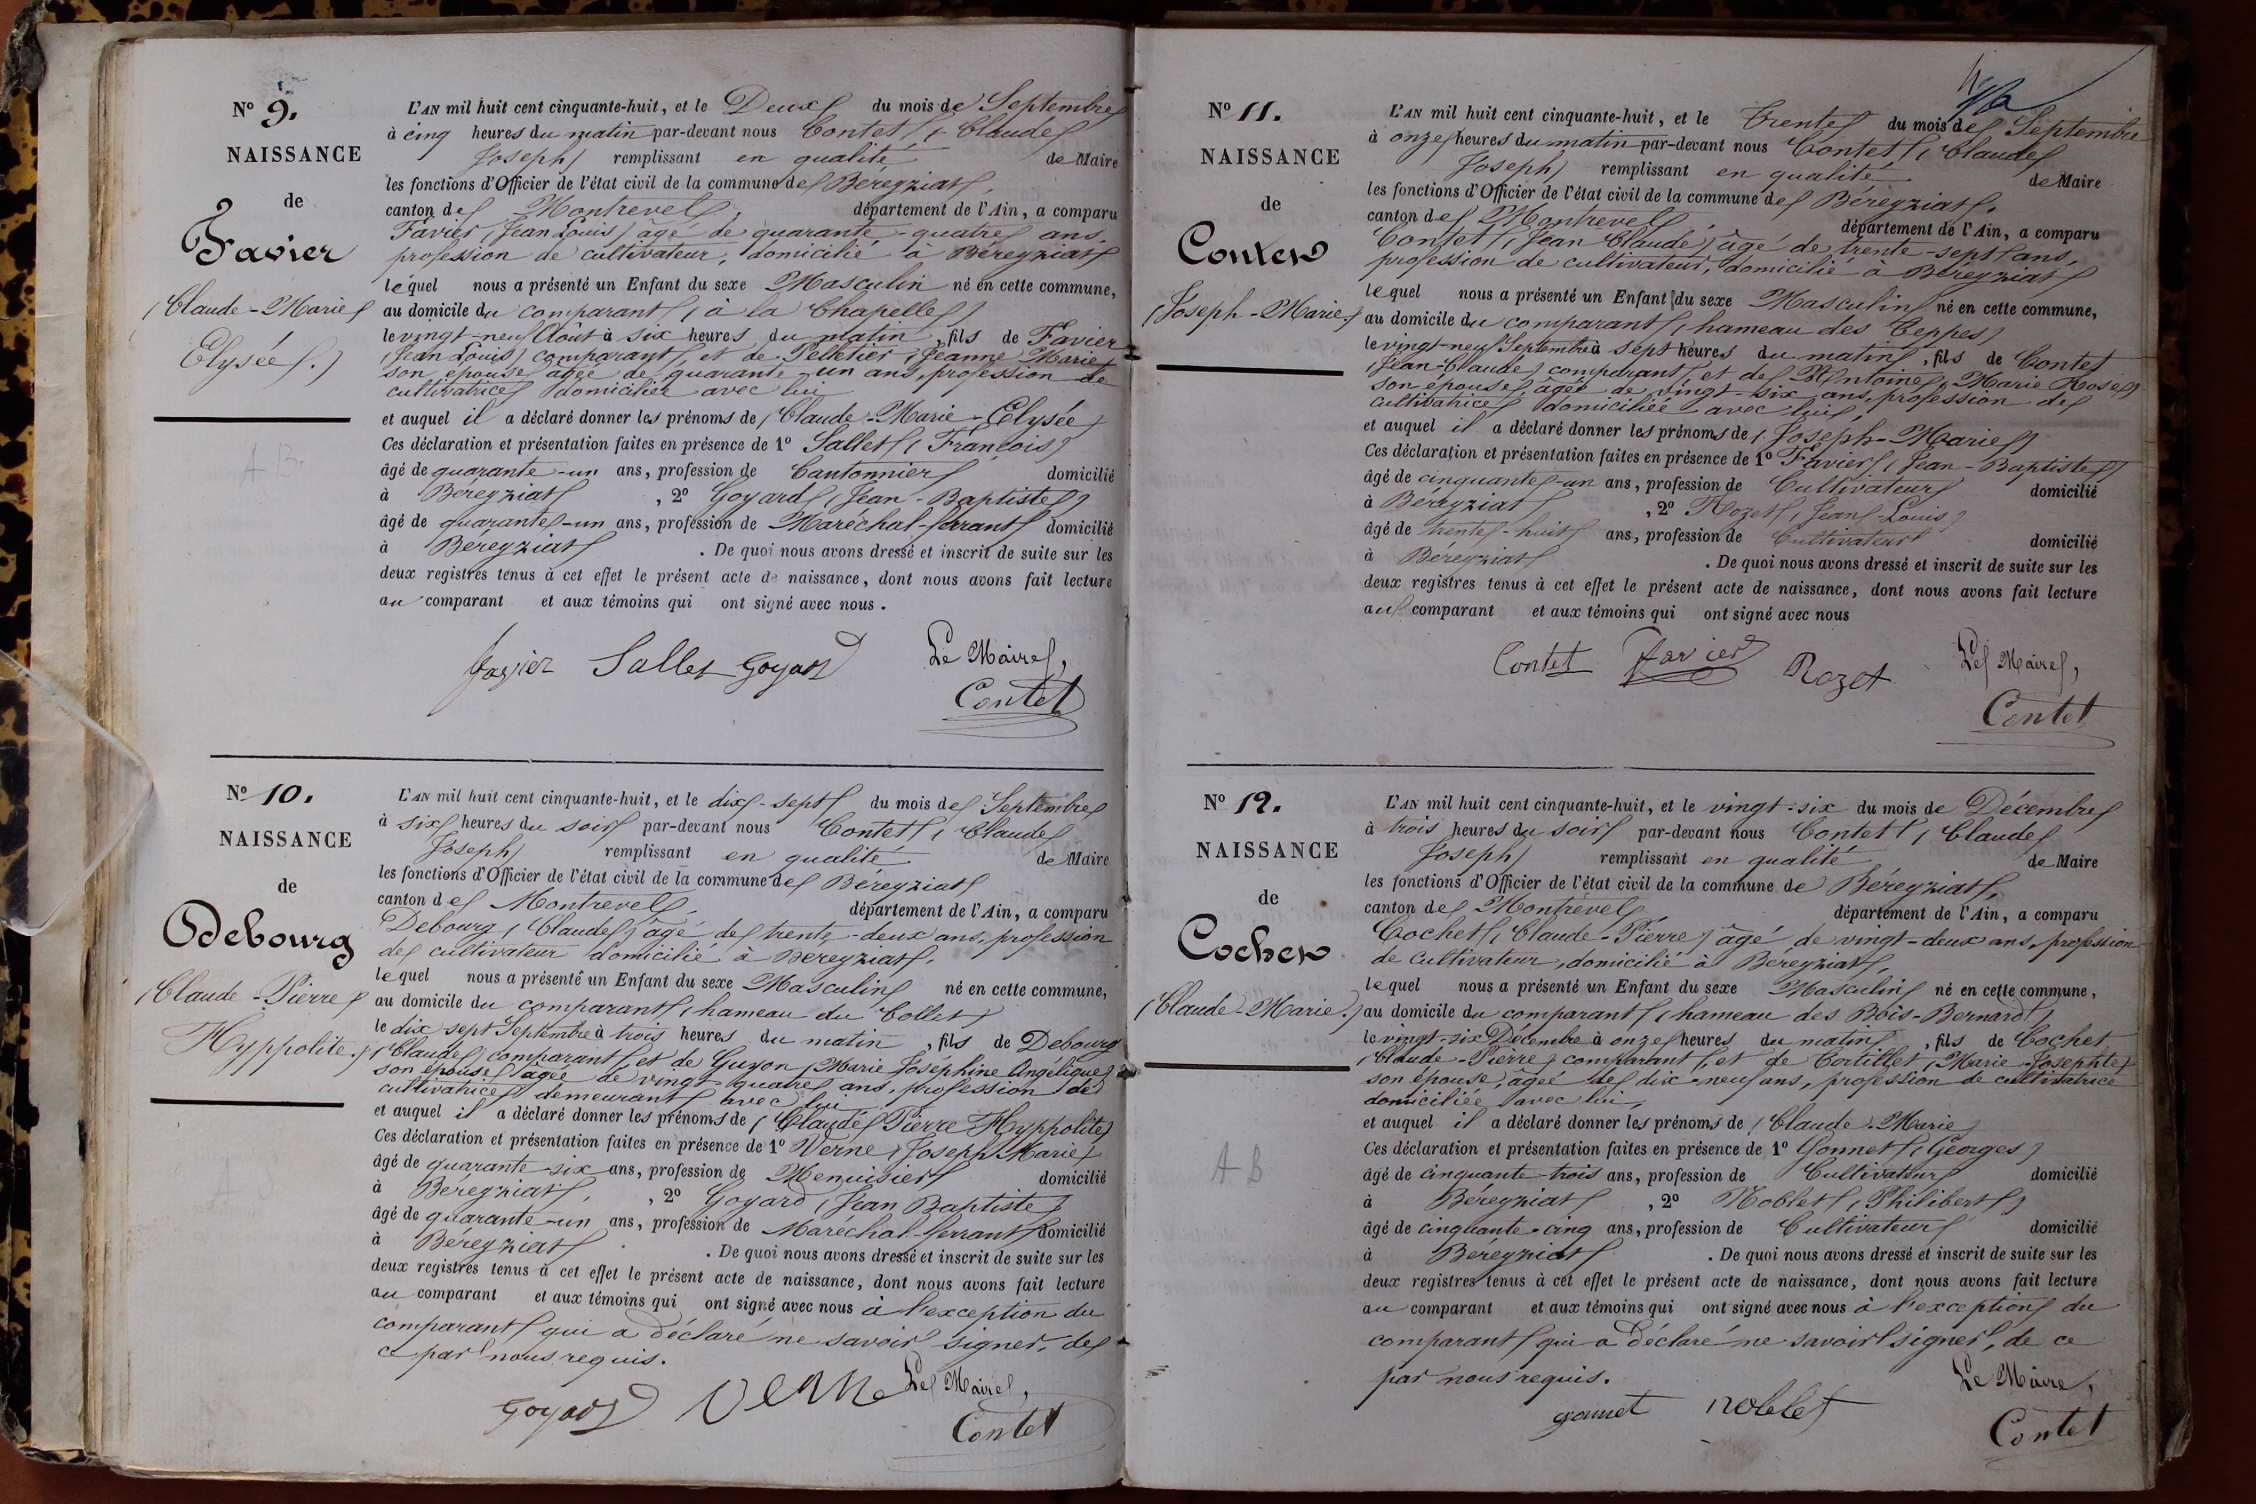 N° 9.
NAISSANCE
de
Favier
(Claude-Marie
Elysée.)
L'AN mil huit cent cinquante-huit, et le Deux du mois de Septembre
à cinq heures du matin par-devant nous Contet (Claude
Joseph) remplissant en qualité de Maire
les fonctions d'Officier de l'état civil de la commune de Béreyziat,
canton de Montrevel, département de l'Ain, a comparu
Favier (Jean Louis) âgé de quarante-quatre ans,
profession de cultivateur, domicilié à Béreyziat
lequel nous a présenté un Enfant du sexe Masculin né en cette commune,
au domicile du comparant (à la Chapelle)
le vingt-neuf Août à six heures du matin, fils de Favier
(Jean Louis) comparant et de Pelletier (Jeanne Marie)
son épouse âgée de quarante un ans, profession de
cultivatrice domiciliée avec lui
et auquel il a déclaré donner les prénoms de (Claude-Marie-Elysée)
Ces déclaration et présentation faites en présence de 1° Sallet (François)
âgé de quarante-un ans, profession de Cantonnier domicilié
à Béreyziat, 2° Goyard (Jean-Baptiste)
âgé de quarante-un ans, profession de Maréchal-ferrant domicilié
à Béreyziat. De quoi nous avons dressé et inscrit de suite sur les
deux registres tenus à cet effet le présent acte de naissance, dont nous avons fait lecture
au comparant et aux témoins qui ont signé avec nous.
Favier Sallet Goyard Le Maire,
Contet
N° 10.
NAISSANCE
de
Debourg
(Claude-Pierre
Hyppolite.)
L'AN mil huit cent cinquante-huit, et le dix-sept du mois de Septembre
à six heures du soir par-devant nous Contet (Claude
Joseph) remplissant en qualité de Maire
les fonctions d'Officier de l'état civil de la commune de Béreyziat
canton de Montrevel, département de l'Ain, a comparu
Debourg (Claude) âgé de trente-deux ans, profession
de cultivateur domicilié à Bereyziat,
lequel nous a présenté un Enfant du sexe Masculin né en cette commune,
au domicile du comparant (hameau du Collet)
le dix sept Septembre à trois heures du matin, fils de Debourg
(Claude) comparant et de Guyon (Marie Joséphine Angélique)
son épouse âgée de vingt quatre ans, profession de
cultivatrice demeurant avec lui
et auquel il a déclaré donner les prénoms de (Claude Pierre Hyppolite)
Ces déclaration et présentation faites en présence de 1° Verne (Joseph Marie)
âgé de quarante-six ans, profession de Menuisier domicilié
à Béreyziat, 2° Goyard (Jean Baptiste)
âgé de quarante-un ans, profession de Maréchal-ferrant domicilié
à Béreyziat. De quoi nous avons dressé et inscrit de suite sur les
deux registres tenus à cet effet le présent acte de naissance, dont nous avons fait lecture
au comparant et aux témoins qui ont signé avec nous à l'exception du
comparant qui a déclaré ne savoir signer, de
ce par nous requis.
Goyard Verne Le Maire,
Contet
N° 11.
NAISSANCE
de
Contet
(Joseph-Marie)
L'AN mil huit cent cinquante-huit, et le Trente du mois de Septembre
à onze heures du matin par-devant nous Contet (Claude
Joseph) remplissant en qualité de Maire
les fonctions d'Officier de l'état civil de la commune de Béreyziat,
canton de Montrevel, département de l'Ain, a comparu
Contet (Jean Claude) âgé de trente-sept ans,
profession de cultivateur, domicilié à Béreyziat
lequel nous a présenté un Enfant du sexe Masculin né en cette commune,
au domicile du comparant (hameau des Teppes)
le vingt-neuf Septembre à sept heures du matin, fils de Contet
(Jean-Claude) comparant et de Antoine (Marie Rose)
son épouse, âgée de vingt-six ans, profession de
cultivatrice domiciliée avec lui
et auquel il a déclaré donner les prénoms de (Joseph-Marie)
Ces déclaration et présentation faites en présence de 1° Favier (Jean-Baptiste)
âgé de cinquante-un ans, profession de Cultivateur domicilié
à Béreyziat, 2° Rozet (Jean-Louis)
âgé de trente-huit ans, profession de Cultivateur domicilié
à Bereyziat. De quoi nous avons dressé et inscrit de suite sur les
deux registres tenus à cet effet le présent acte de naissance, dont nous avons fait lecture
au comparant et aux témoins qui ont signé avec nous
Contet Favier Rozet Le Maire,
Contet
N° 12.
NAISSANCE
de
Cochet
(Claude-Marie.)
A B
L'AN mil huit cent cinquante-huit, et le vingt-six du mois de Décembre
à trois heures du soir par-devant nous Contet (Claude
Joseph) remplissant en qualité de Maire
les fonctions d'Officier de l'état civil de la commune de Béreyziat,
canton de Montrevel, département de l'Ain, a comparu
Cochet (Claude-Pierre) âgé de vingt-deux ans, profession
de cultivateur, domicilié à Bereyziat,
lequel nous a présenté un Enfant du sexe Masculin né en cette commune,
au domicile du comparant (hameau des Bois-Bernard)
le vingt-six Décembre à onze heures du matin, fils de Cochet
(Claude-Pierre) comparant, et de Tortillet (Marie-Josephte)
son épouse, âgée de dix-neuf ans, profession de cultivatrice
domiciliée avec lui,
et auquel il a déclaré donner les prénoms de (Claude-Marie)
Ces déclaration et présentation faites en présence de 1° Gonnet (Georges)
âgé de cinquante-trois ans, profession de Cultivateur domicilié
à Béreyziat, 2° Noblet (Philibert)
âgé de cinquante-cinq ans, profession de Cultivateur domicilié
à Béreyziat. De quoi nous avons dressé et inscrit de suite sur les
deux registres tenus à cet effet le présent acte de naissance, dont nous avons fait lecture
au comparant et aux témoins qui ont signé avec nous à l'exception du
comparant qui a déclaré ne savoir signer, de ce
par nous requis.
Le Maire,
gonnet noblet
Contet